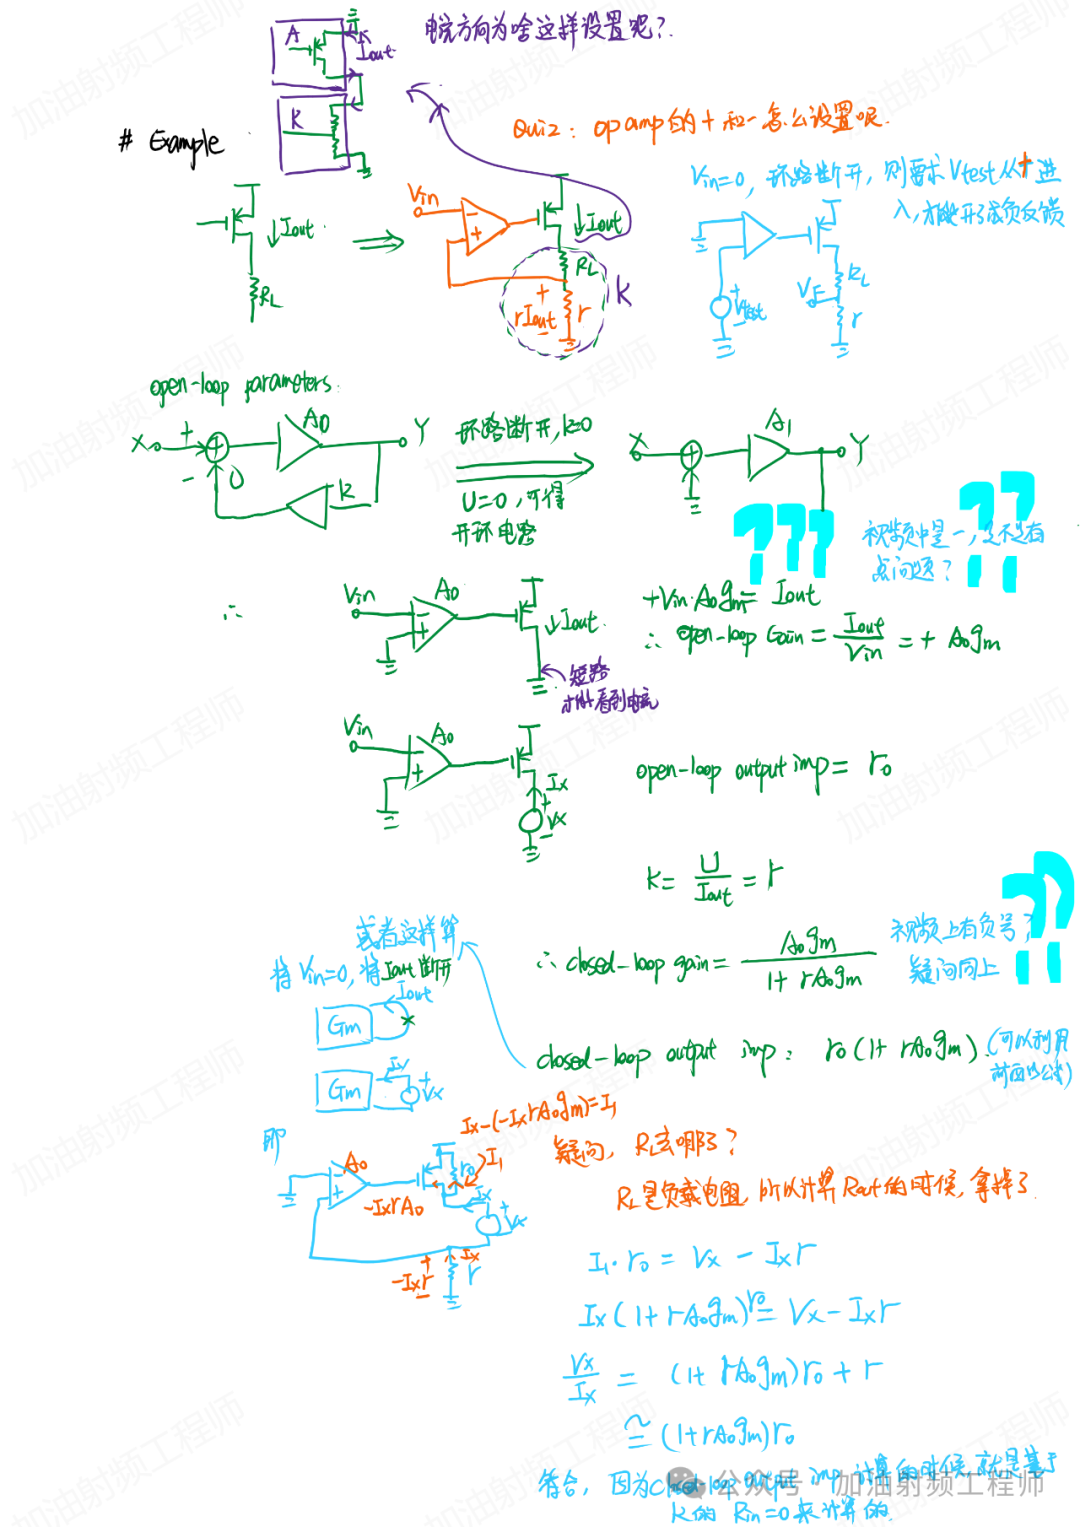 电流方向为啥这样设置呢?
A
Iout
K
# Example
Quiz: op amp的+和-怎么设置呢.
Vin=0, 环路断开, 则要求Vtest从+进
入,才能形成负反馈
Iout
RL
Vin
-
+
Iout
RL
K
+
rIout
-
r
+
Vtest
-
RL
VF
r
open-loop parameters.
X
+
-
U
A0
Y
K
环路断开, K=0
U=0, 可得
开环电路
X
A1
Y
???
??
视频中是一, 是不是有
点问题?
∴
Vin
A0
-
+
Iout
短路
才能看到电流
+Vin·A0gm = Iout
∴ open-loop Gain = Iout/Vin = + A0gm
Vin
A0
-
+
Ix
+
Vx
-
open-loop output imp = r0
K = U/Iout = r
∴ closed-loop gain = A0gm/(1+rA0gm)
视频上有负号?
疑问同上
??
或者这样算
将Vin=0, 将Iout断开
Iout
Gm
Gm
Ix
+
Vx
-
closed-loop output imp: r0(1+rA0gm).
(可以利用
前面的公式)
即
Ix-(-IxrA0gm)=I1
A0
-
+
-IxrA0
r0
I1
Ix
+
Vx
-
+
-Ixr
-
Ix
r
疑问, RL去哪了?
RL是负载电阻, 所以计算Rout的时候, 拿掉了.
I1·r0 = Vx - Ixr
Ix(1+rA0gm)r0 = Vx - Ixr
Vx/Ix = (1+rA0gm)r0 + r
≅ (1+rA0gm)r0
符合, 因为closed-loop output imp 计算的时候, 就是基于
K的Rin=0来计算的.
公众号·加油射频工程师
加油射频工程师